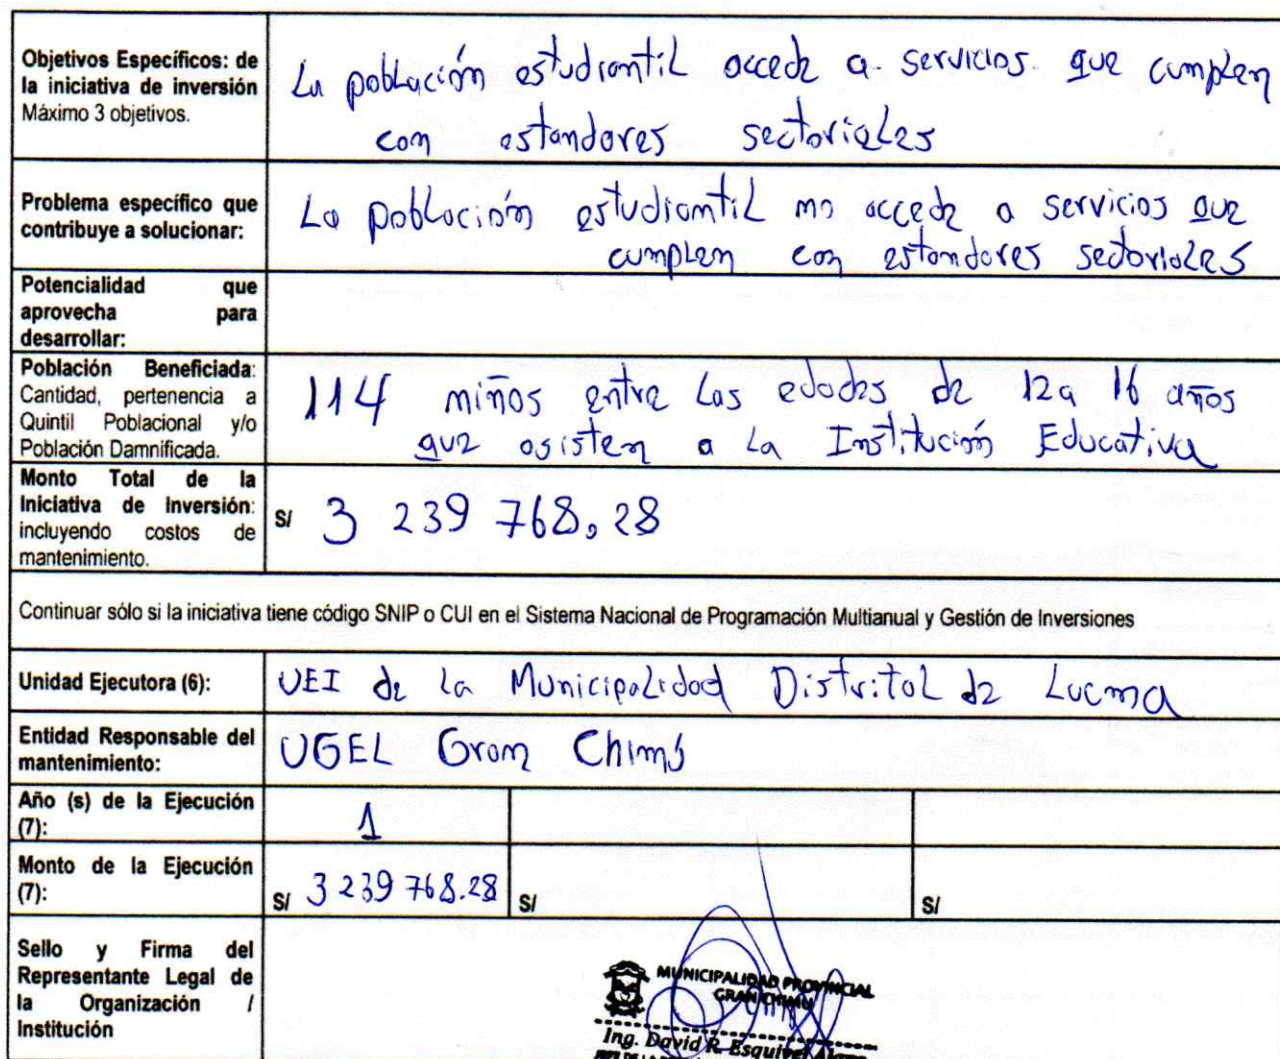 Objetivos Específicos: de
la iniciativa de inversión
Máximo 3 objetivos.
La población estudiantil accede a servicios que cumplen
con estandares sectoriales
Problema específico que
contribuye a solucionar:
La población estudiantil no accede a servicios que
cumplen con estandares sectoriales
Potencialidad que
aprovecha para
desarrollar:
Población Beneficiada:
Cantidad, pertenencia a
Quintil Poblacional y/o
Población Damnificada.
114 niños entre las edades de 12 a 16 años
que asisten a la Institución Educativa
Monto Total de la
Iniciativa de Inversión:
incluyendo costos de
mantenimiento.
S/ 3 239 768,28
Continuar sólo si la iniciativa tiene código SNIP o CUI en el Sistema Nacional de Programación Multianual y Gestión de Inversiones
Unidad Ejecutora (6):
UEI de la Municipalidad Distrital de Lucma
Entidad Responsable del
mantenimiento:
UGEL Gran Chimú
Año (s) de la Ejecución
(7):
1
Monto de la Ejecución
(7):
S/ 3 239 768.28 S/ S/
Sello y Firma del
Representante Legal de
la Organización /
Institución
MUNICIPALIDAD PROVINCIAL
GRAN CHIMU
Ing. David R. Esquivel